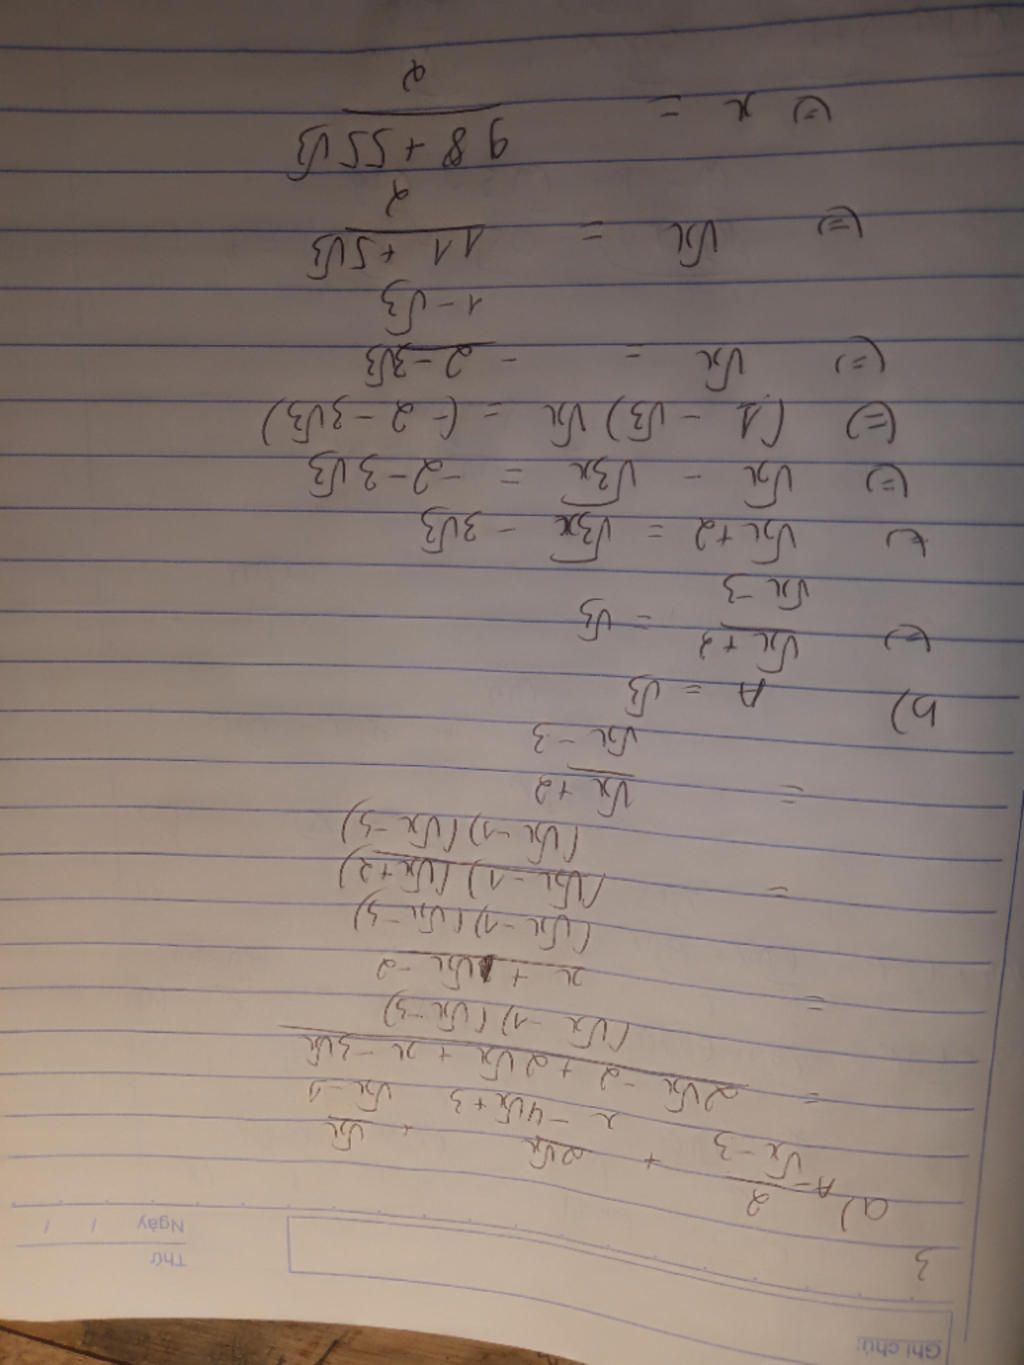 Ghi chú:
Thứ
Ngày / /
3
a) A = 2/(√x - 3) + 2√x/(x - 4√x + 3) + √x/(√x - 1)
= (2√x - 2 + 2√x + x - 3√x)/((√x - 1)(√x - 3))
= (x + √x - 2)/((√x - 1)(√x - 3))
= ((√x - 1)(√x + 2))/((√x - 1)(√x - 3))
= (√x + 2)/(√x - 3)
b) A = √3
(=) (√x + 2)/(√x - 3) = √3
(=) √x + 2 = √3x - 3√3
(=) √x - √3x = -2 - 3√3
(=) (1 - √3) √x = (-2 - 3√3)
(=) √x = - (2 - 3√3)/(1 - √3)
(=) √x = (11 + 5√3)/2
(=) x = (98 + 55√3)/2